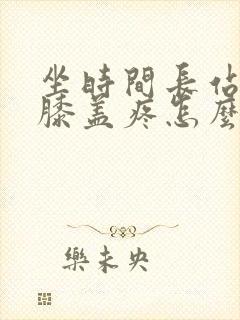 坐時間長佔
膝蓋疼怎麼
樂未央